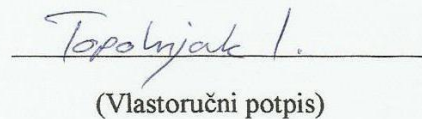 Topolnjak I.
(Vlastoručni potpis)